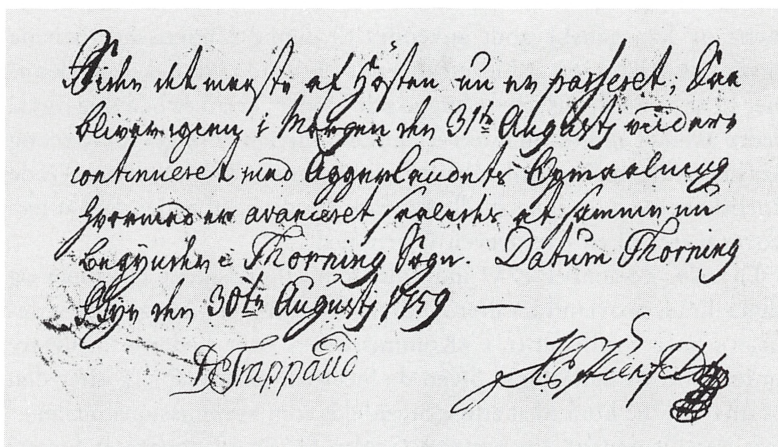 Siden det meeste af Hösten nu er passeret, Saa
bliver igen i Morgen den 31te Augusti viidere
continueret med Aggerlandets Opmaaling
hvormed er avanceret saaledes at samme nu
begyndes i Thorning Sogn. Datum Thorning
Bye den 30te Augusti 1759 —
D Trappaud